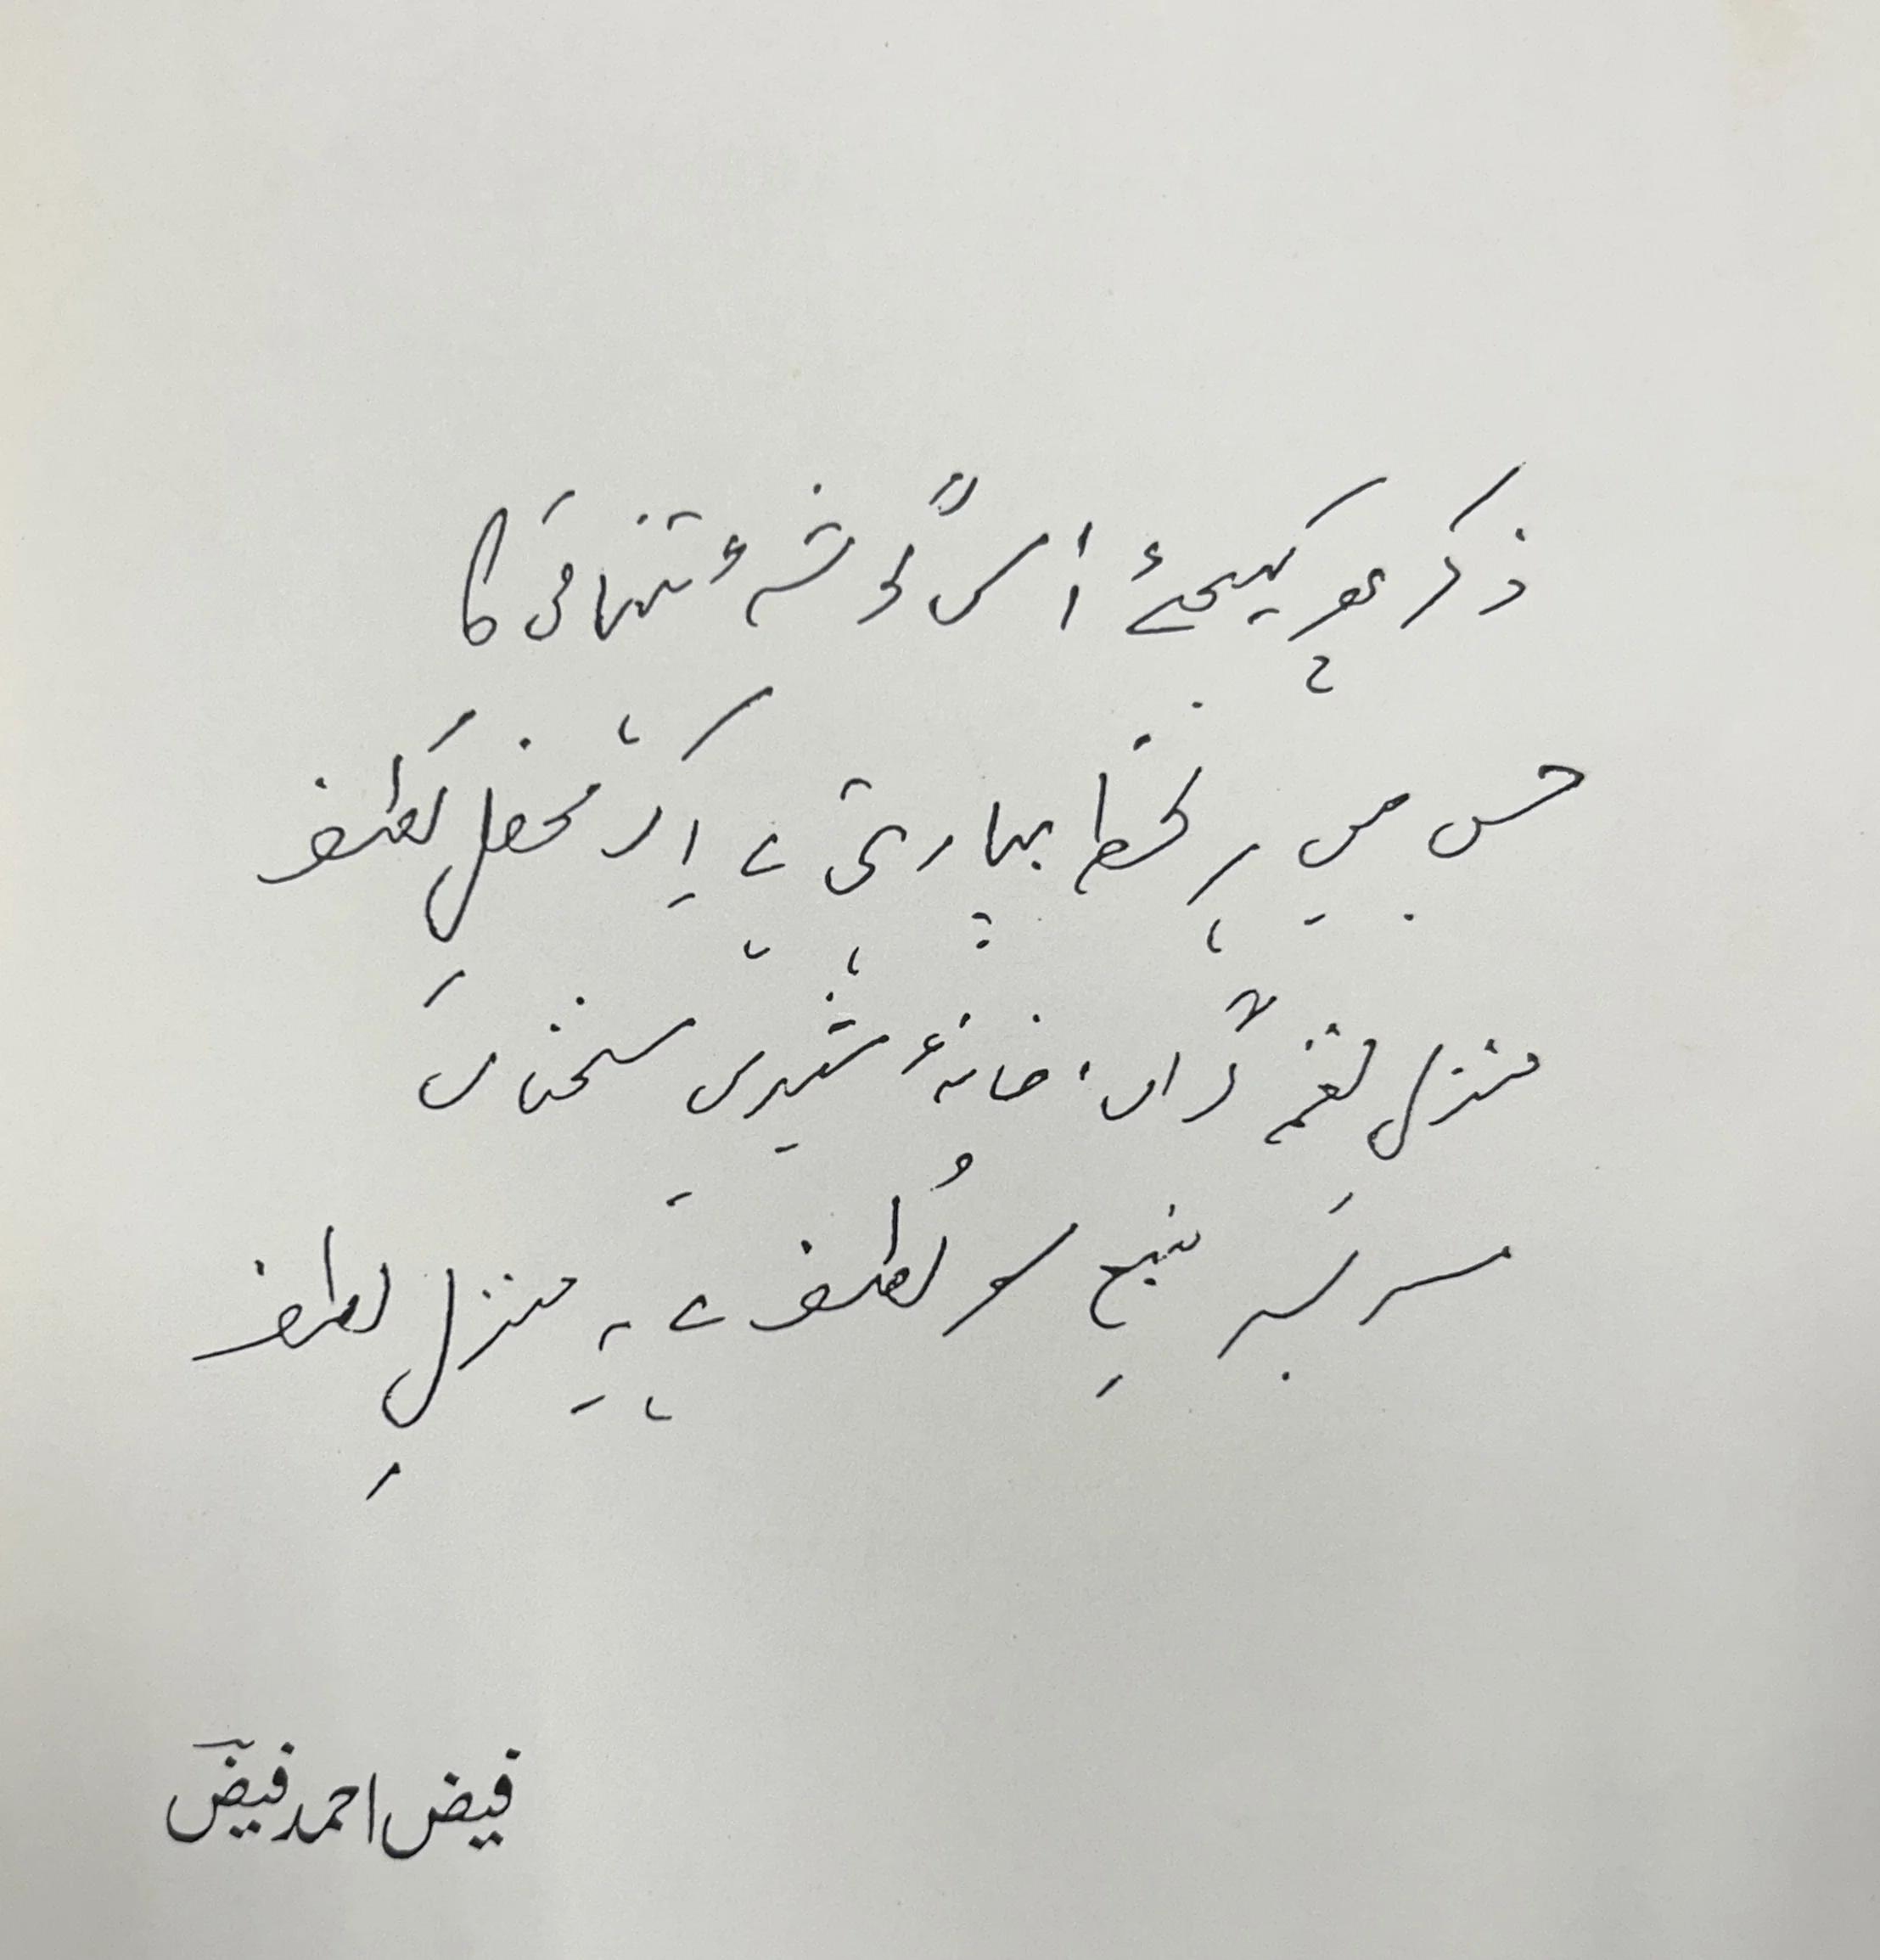 ذکر پھر کیجئے اس گوشۂ تنہائی کا
جس میں ہر لحظہ بپا رہتی ہے اِک محفلِ لطف
منزل نغمہ گراں، خانۂ شیریں سخناں
سر بسر منبعِ سو لُطف ہے یہ منزلِ لطف
فیض احمد فیضؔ